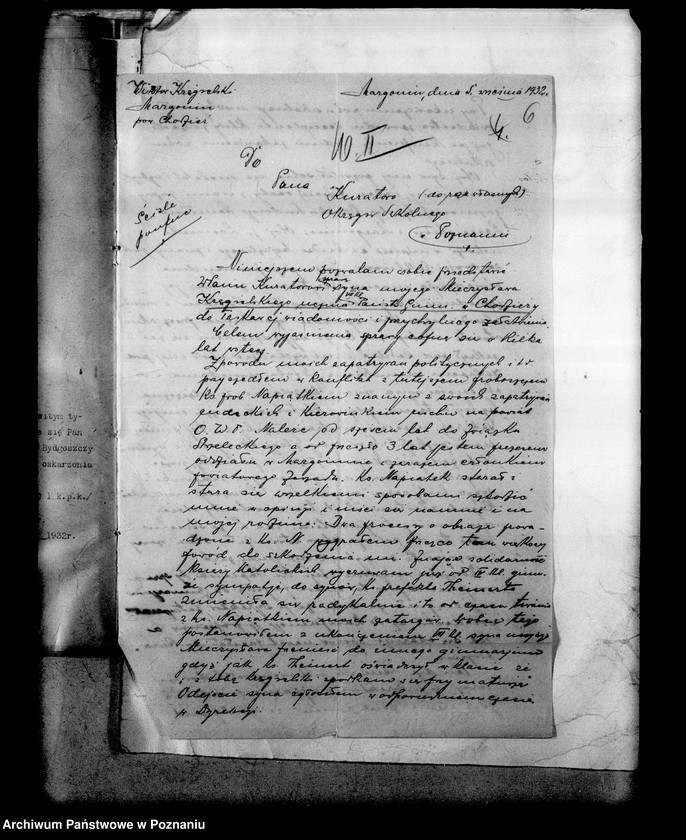 Wiktor Kręgielski
Margonin
pow. Chodzież
Margonin, dnia 5. września 1932.
6
4.
W II
Do
Pana
Kuratora (do rąk własnych)
Okręgu Szkolnego
w Poznaniu
Ściśle
poufne
Niniejszem pozwalam sobie przedłożyć
Panu Kuratorowi syna mojego Mieczysława
Kręgielskiego ucznia Państw. Gimn. w Chodzieży
do łaskawej wiadomości i przychylnego załatwienia.
Celem wyjaśnienia sprawy cofnę się o kilka
lat wstecz
Z powodu moich zapatrywań politycznych i t.p.
przyszedłem w konflikt z tutejszem proboszczem
ks. prob Napiątkiem znanym z swoich zapatrywań
endeckich i kierownikiem ruchu na powiat
O. W. P. Należę od sześciu lat do Związku
Strzeleckiego a od przeszło 3 lat jestem prezesem
oddziału w Margoninie i zarazem członkiem
powiatowego Zarządu. Ks. Napiątek starał i
stara się wszelkiemi sposobami szkodzić
mnie w opinji i mści się na mnie i na
mojej rodzinie. Dwa procesy o obrazę prowadzone
z ks. N. wygrałem przeco tem większy
powód do szkodzenia mi. Znając solidarność
księży katolickich wyczuwam już od kl. gimn.
że sympatje, do synów, ks. prefekta Theinerta
zmieniła się radykalnie i to od czasu
z ks. Napiątkiem moich zatargów. Wobec tego
postanowiłem z ukończeniem kl. syna mojego
Mieczysława przenieść do innego gimnazjum
gdyż jak ks. Theinert oświadczył w klasie że
"i z tobą Kręgielski spotkamy się przy maturze"
Odejście syna zgłosiłem w odpowiednim czasie
p. Dyrekcji.
witym ty-
o się Pan
Bydgoszczy
oskarzenia
1 k.p.k./
1932r.
Archiwum Państwowe w Poznaniu